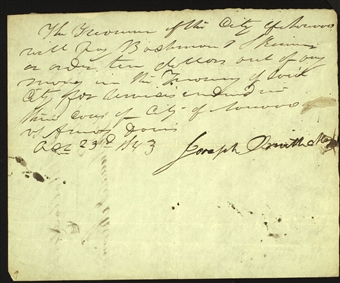 The Treasurer of the City of Nauvoo
will pay &
or order ten dollars out of any
money in the Treasury of said
City for services rendered in
the case of City of Nauvoo
vs Amos Davis
23d 1843
Joseph Smith